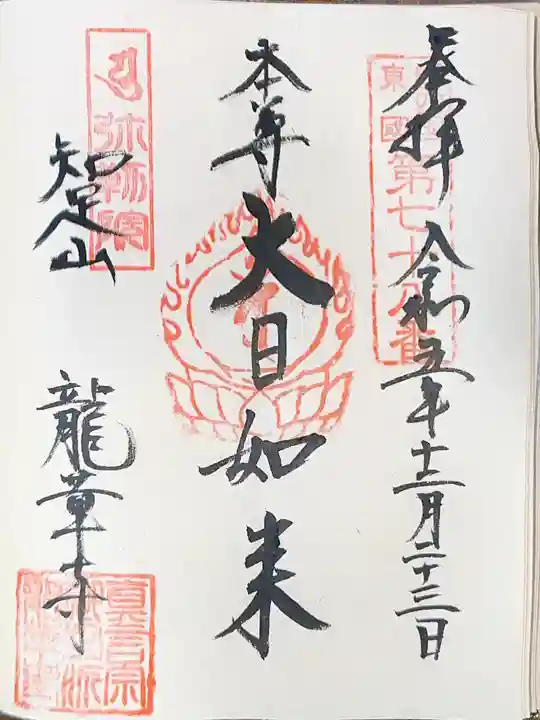 奉拝 令和五年十二月二十三日
東國
第七十八番
本尊 大日如来
弥勒院
智足山 龍章寺
真言宗
派